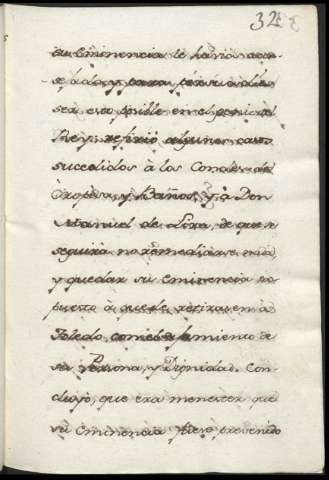 32
su Eminencia le havia acon-
sejado, y para persuadir
ser esto posible en el genio del
Rey, refirió algunos casos
sucedidos à los Condes de
Oropesa, y Baños, y à Don
Manuel de Lira, de que se
seguirá no remediarse nada
y quedar su Eminencia ex-
puesto à que le retirasen à
Toledo, con el ajamiento de
su Persona, y Dignidad. Con-
cluyó, que era menester que
su Eminencia fuese prevenido